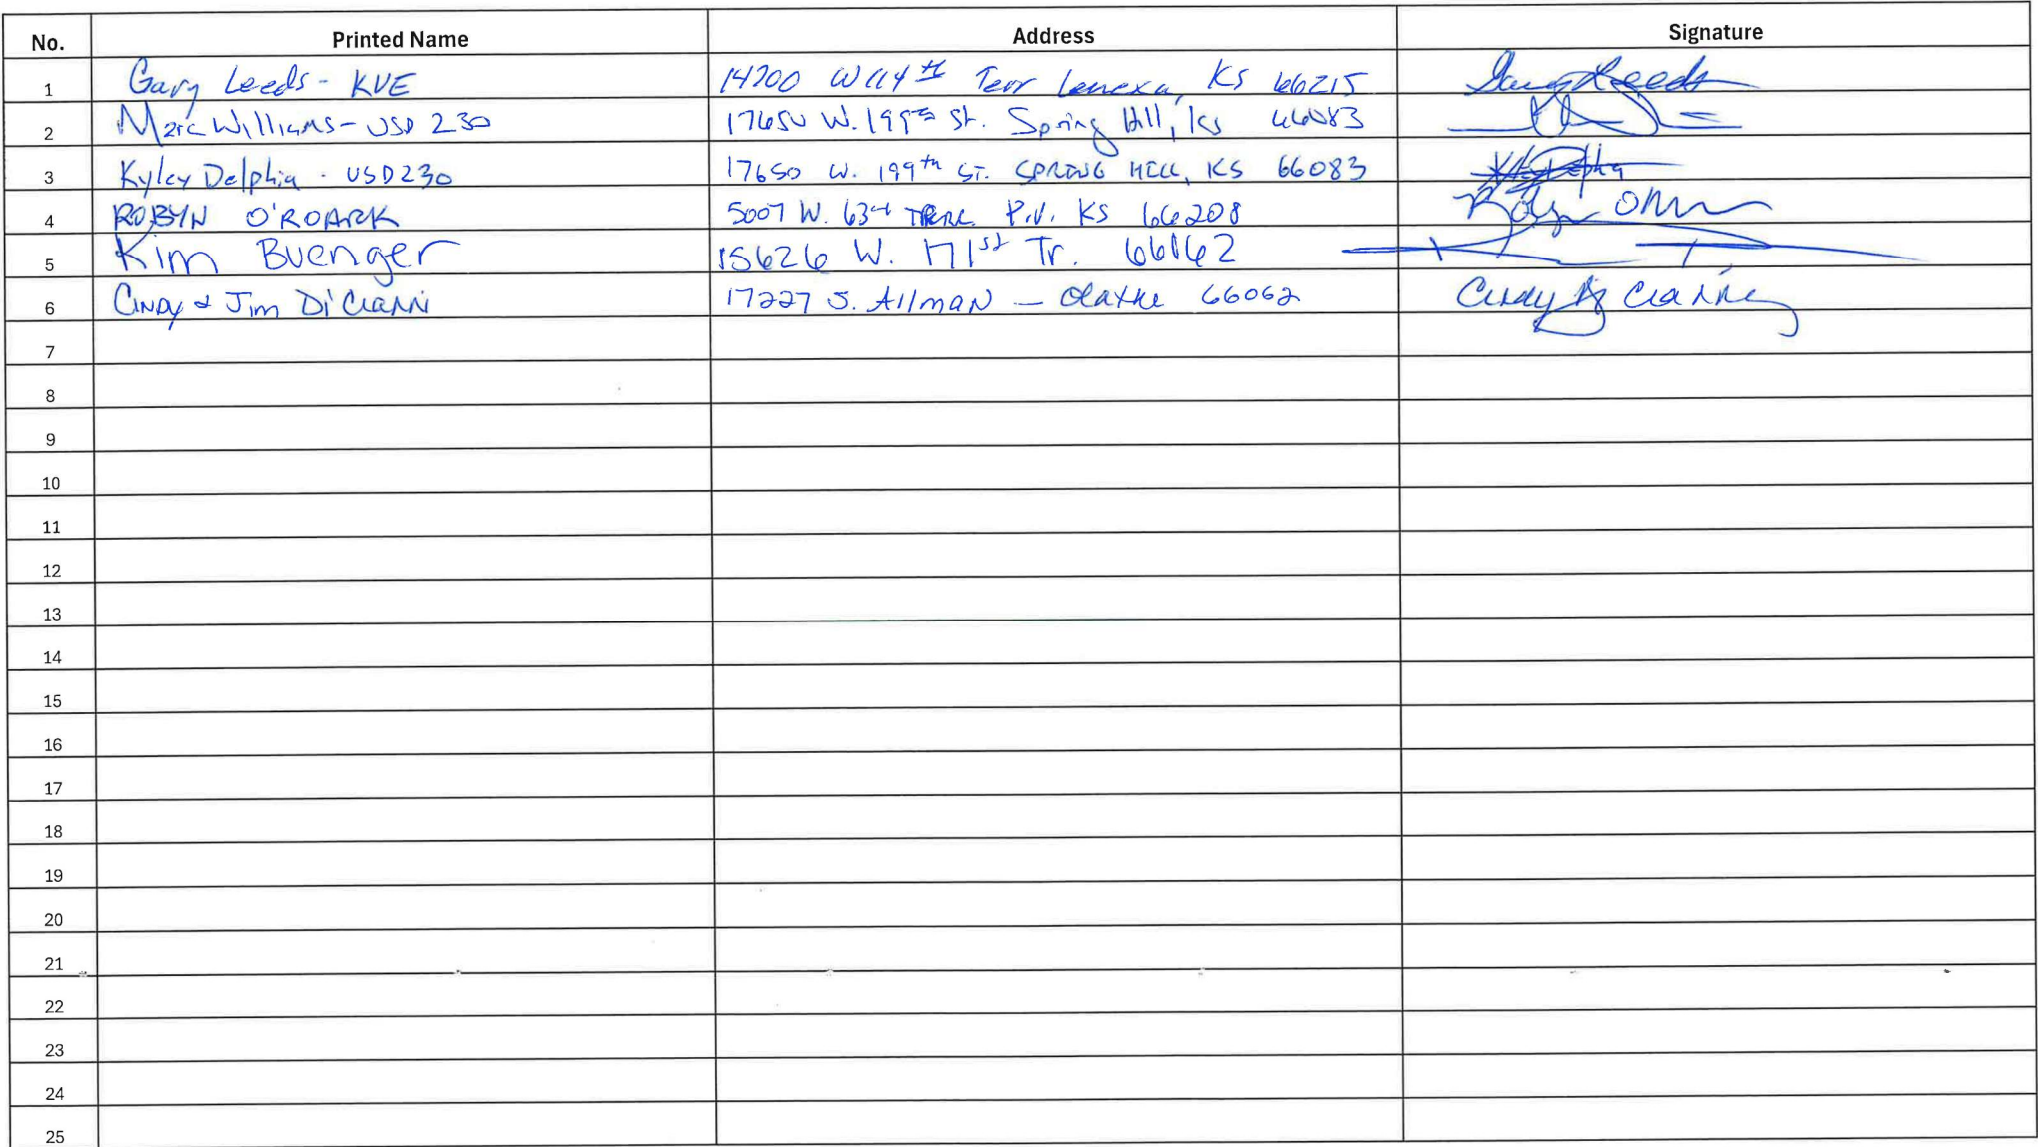 No. Printed Name Address Signature
1 Gary Leeds - KVE 14700 W 114th Terr Lenexa, KS 66215 Gary Leeds
2 Marc Williams - USD 230 17650 W. 199th St. Spring Hill, Ks 66083
3 Kyley Delphia - USD230 17650 W. 199th ST. SPRING HILL, KS 66083
4 ROBYN O'ROARK 5007 W. 63rd TERR P.V. KS 66208
5 Kim Buenger 15626 W. 171st Tr. 66162
6 Cindy & Jim Di'Cianni 17227 S. Allman - Olathe 66062 Cindy Di Cianni
7
8
9
10
11
12
13
14
15
16
17
18
19
20
21
22
23
24
25